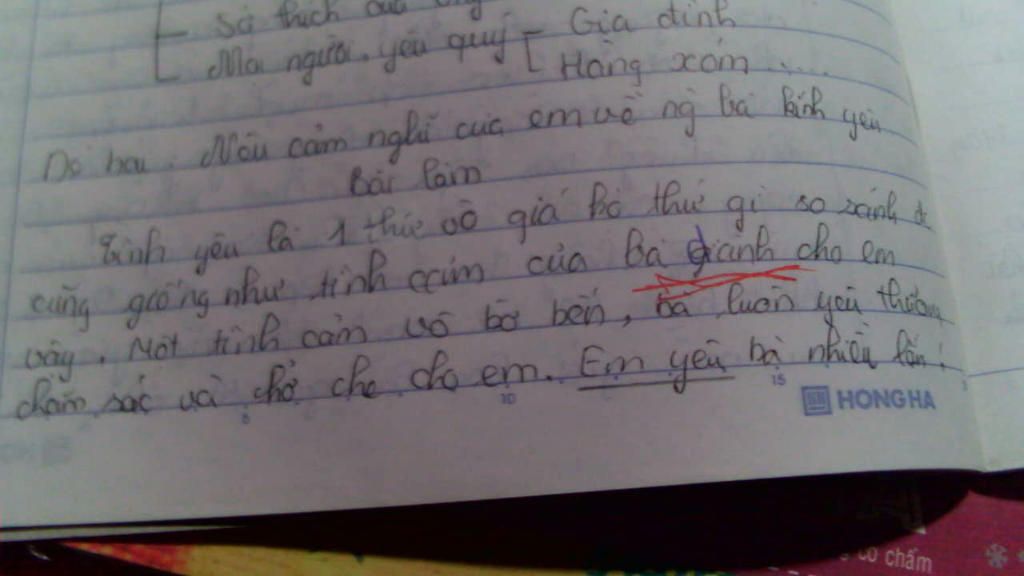 Sở thích của
Mọi người yêu quý Gia đình
Hàng xóm ....
Đề hai: Nêu cảm nghĩ của em về ng bà kính yêu
Bài làm
Tình yêu là 1 thứ vô giá kó thứ gì so sánh đc
cũng giống như tình cảm của bà dành cho em
vậy. Một tình cảm vô bờ bến, bà luôn yêu thương
chăm sóc và chở che cho em. Em yêu bà nhiều lắm!
5 10 15
HONG HA
có chấm